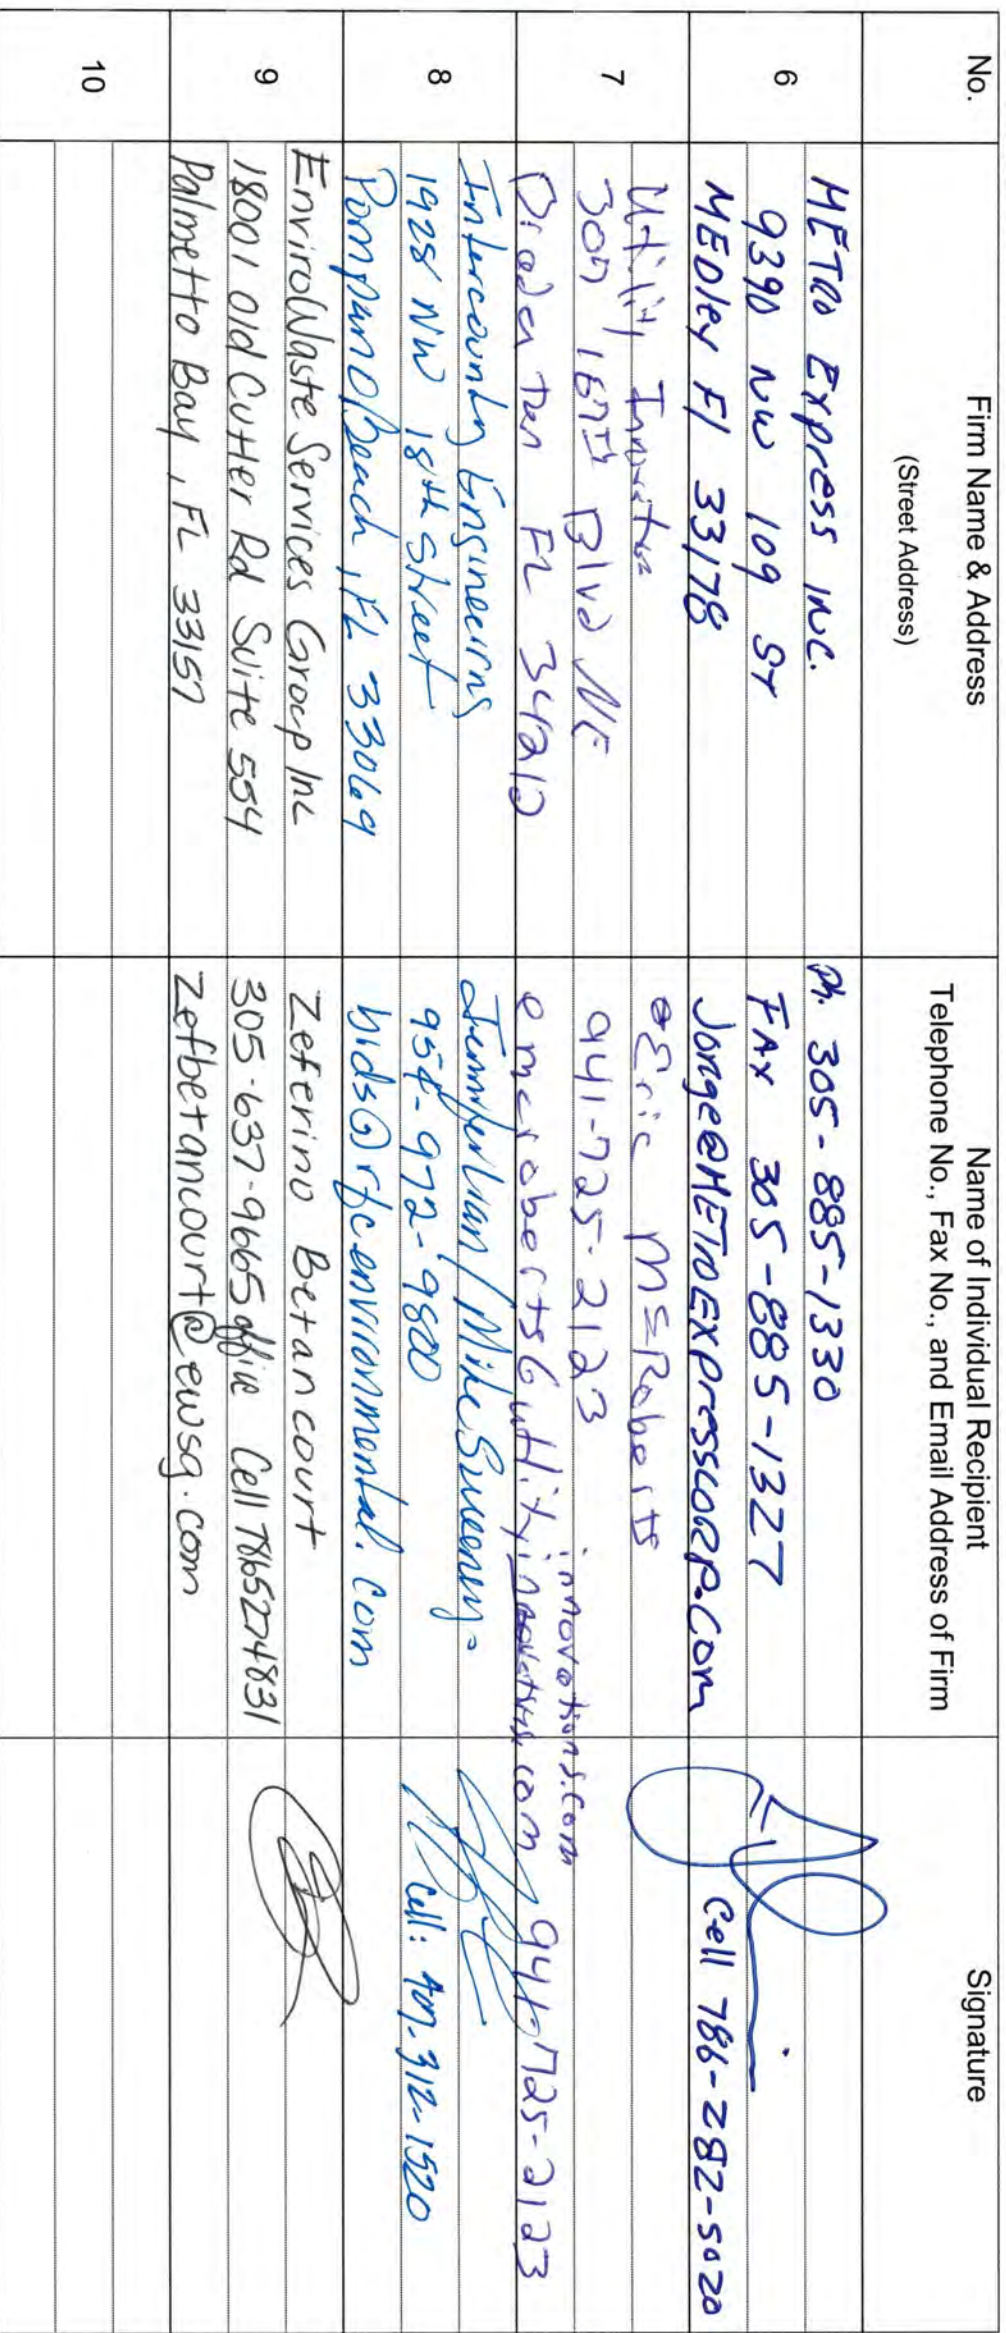 No.
Firm Name & Address
(Street Address)
Name of Individual Recipient
Telephone No., Fax No., and Email Address of Firm
Signature
6
METRO Express INC.
9390 NW 109 ST
MEDley Fl 33178
Ph. 305-885-1330
FAX 305-885-1327
Jorge@METROEXpressCORP.Com
Cell 786-282-5020
7
Utility Innovations
307 167th Blvd NE
Bradenton FL 34212
Eric McRoberts
941-725-2123
innovations.com
941-725-2123
8
Intercounty Engineering
1925 NW 18th Street
Pompano Beach, FL 33069
Mike Sweeney
954-972-9800
bids@rfcenvironmental.com
Cell: 407-312-1520
9
EnviroWaste Services Group Inc
18001 Old Cutler Rd Suite 554
Palmetto Bay, FL 33157
Zeferino Betancourt
305-637-9665 office Cell 7865274831
Zefbetancourt@ewsg.com
10